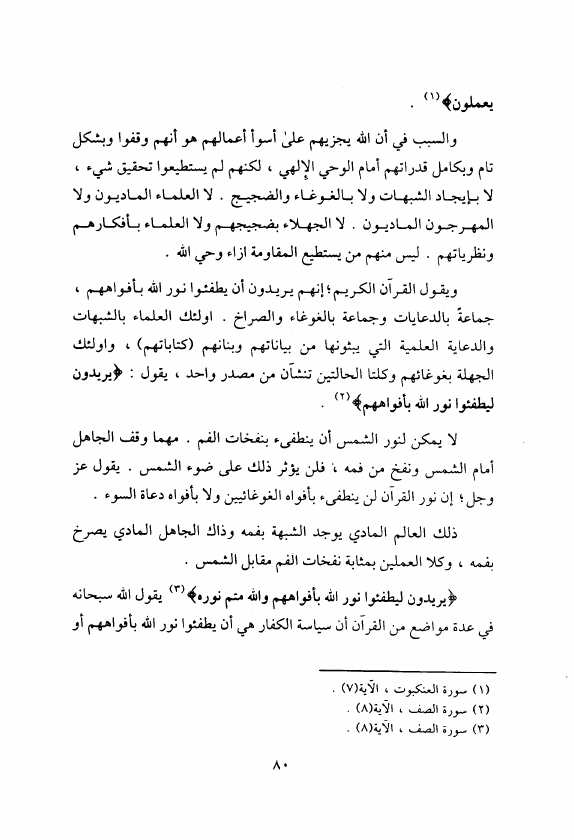 يعملون﴾(١) .
والسبب في أن الله يجزيهم على أسوأ أعمالهم هو أنهم وقفوا وبشكل
تام وبكامل قدراتهم أمام الوحي الإلهي ، لكنهم لم يستطيعوا تحقيق شيء ،
لا بإيجاد الشبهات ولا بالغوغاء والضجيج . لا العلماء الماديون ولا
المهرجون الماديون . لا الجهلاء بضجيجهم ولا العلماء بأفكارهم
ونظرياتهم . ليس منهم من يستطيع المقاومة ازاء وحي الله .
ويقول القرآن الكريم؛ إنهم يريدون أن يطفئوا نور الله بأفواههم ،
جماعةً بالدعايات وجماعة بالغوغاء والصراخ . اولئك العلماء بالشبهات
والدعاية العلمية التي يبثونها من بياناتهم وبنانهم (كتاباتهم) ، واولئك
الجهلة بغوغائهم وكلتا الحالتين تنشآن من مصدر واحد ، يقول : ﴿يريدون
ليطفئوا نور الله بأفواههم﴾(٢) .
لا يمكن لنور الشمس أن ينطفىء بنفخات الفم . مهما وقف الجاهل
أمام الشمس ونفخ من فمه ، فلن يؤثر ذلك على ضوء الشمس . يقول عز
وجل؛ إن نور القرآن لن ينطفىء بأفواه الغوغائيين ولا بأفواه دعاة السوء .
ذلك العالم المادي يوجد الشبهة بفمه وذاك الجاهل المادي يصرخ
بفمه ، وكلا العملين بمثابة نفخات الفم مقابل الشمس .
﴿يريدون ليطفئوا نور الله بأفواههم والله متم نوره﴾(٣) يقول الله سبحانه
في عدة مواضع من القرآن أن سياسة الكفار هي أن يطفئوا نور الله بأفواههم أو
(١) سورة العنكبوت ، الآية(٧) .
(٢) سورة الصف ، الآية(٨) .
(٣) سورة الصف ، الآية(٨) .
٨٠